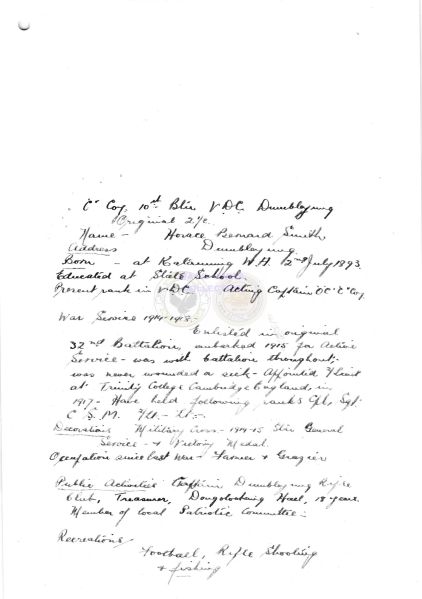 "C" Coy 10th Btn V.D.C. Dumbleyung
Original 2/c.
Name - Horace Bernard Smith
Address Dumbleyung
Born - at Katanning W.A. 2nd July 1893.
Educated at State School.
Present rank in V.D.C. Acting Captain O.C. "C" Coy.
War Service 1914-1918:-
Enlisted in original
32nd Battalion, embarked 1915 for Active
Service - was with battalion throughout,
was never wounded or sick - Appointed
at Trinity College Cambridge England, in
1917 - Have held following ranks Cpl, Sgt
C.S.M.
Decorations Military Cross - 1914-15 Star General
Service - + Victory Medal.
Occupation since last War - Farmer + Grazier
Public Activities Captain Dumbleyung Rifle
Club, Treasurer, Hall, 18 years.
Member of local Patriotic Committee:-
Recreations
Football, Rifle Shooting
+ fishing